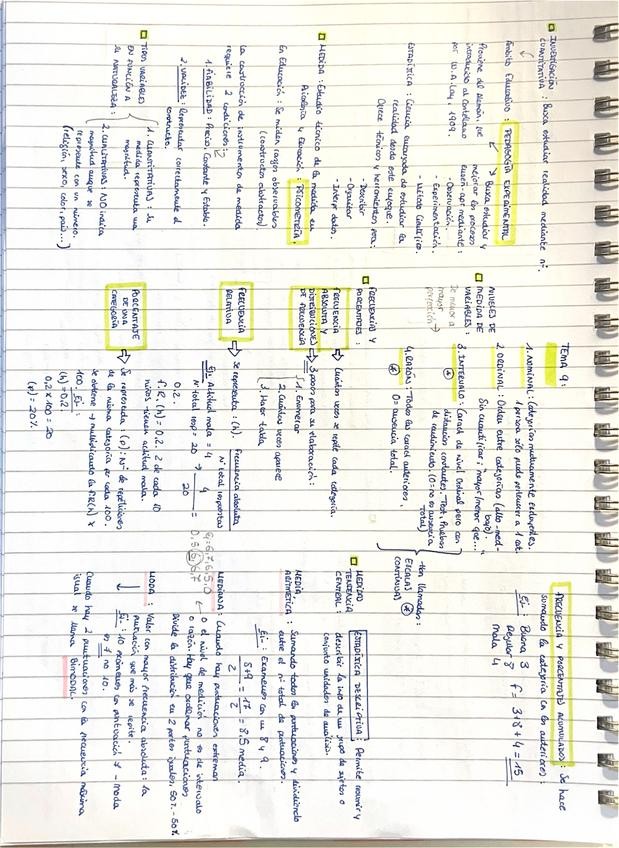 INVESTIGACIÓN
CUANTITATIVA : Busca estudiar realidad mediante nº.
Ámbito Educativo : PEDAGOGÍA EXPERIMENTAL
Proviene del alemán, se
introducido al Castellano
por W.A. Lay, 1909.
Busca estudiar y
mejorar los procesos
mediante :
- Observación.
- Experimentación.
- Método Científico.
ESTADÍSTICA : Ciencia encargada de estudiar la
realidad desde este enfoque.
Ofrece técnicas y herramientas para:
- Describir
- Organizar
- Interpr. datos.
MEDIDA : Estudio técnico de la medida en
Psicología y Educación : PSICOMETRÍA.
En Educación : Se miden rasgos observables
(constructos abstractos)
La construcción de instrumentos de medida
requiere 2 condiciones :
1. FIABILIDAD : Preciso, Constante y Estable.
2. VALIDEZ : Representar correctamente el
constructo.
TIPOS VARIABLES
EN FUNCIÓN A
la NATURALEZA :
1. CUANTITATIVAS : la
medida representa una
magnitud.
2. CUALITATIVAS : NO indica
magnitud aunque se
represente con un número.
(religión, sexo, color, país...)
TEMA 9:
NIVELES DE
MEDIDA DE
VARIABLES :
De menor a
mayor
perfección →
1. NOMINAL : Categorías mutuamente excluyentes.
1 persona sólo puede pertenecer a 1 cat.
2. ORDINAL : Orden entre categorías (alto-med-
bajo).
Sin cuantificar : mayor/menor que...
3. INTERVALO : Caract. de nivel Ordinal pero con
distancias constantes. Test, Pruebas
de rendimiento. (0 = no es ausencia
total)
4. RAZÓN : Todas las caract. anteriores.
0 = ausencia total.
tbn llamadas :
ESCALAS
CONTINUAS
FRECUENCIA Y
PORCENTAJES :
FRECUENCIA
ABSOLUTA Y
DISTRIBUCIONES
DE FRECUENCIA
Cuántas veces se repite cada categoría.
3 pasos para su elaboración :
1. Enumerar
2. Cuántas veces aparece
3. Hacer tabla
FRECUENCIA
RELATIVA
Se representa : (h).
Frecuencia absoluta
Nº total respuestas
Ej: Actitud mala = 4
Nº total resp = 20 → 4
20
= 0,2.
f.R.(h) = 0,2. 2 de cada 10
niños tienen actitud mala.
PORCENTAJE
DE UNA
CATEGORÍA
Se representa : (p) : Nº de repeticiones
de la misma categoría por cada 100.
Se obtiene → multiplicando la f.R(h) x
100. Ej:
(h) = 0,2.
0,2 x 100 = 20
(p) = 20%
FRECUENCIA Y PORCENTAJES ACUMULADOS : Se hace
sumando la categoría con las anteriores :
Ej: Buena 3
Regular 8
Mala 4
f = 3+8+4 = 15
MEDIDAS
TENDENCIA
CENTRAL :
ESTADÍSTICA DESCRIPTIVA : Permite resumir y
describir la info de un grupo de sujetos o
conjunto unidades de análisis.
MEDIA
ARITMÉTICA : Sumando todas las puntuaciones y dividiendo
entre el nº total de puntuaciones.
Ej: Exámenes con un 8 y 9.
8+9
2
= 17
2
= 8,5 media.
MEDIANA : Cuando hay puntuaciones extremas
o el nivel de medición no es de intervalo
o razón. Hay que ordenar puntuaciones
Divide la distribución en 2 partes iguales, 50% - 50%
MODA : Valor con mayor frecuencia absoluta : la
puntuación que más se repite.
Ej: 10 exámenes con puntuación 7 - moda
es 7 no 10.
Cuando hay 2 puntuaciones con la frecuencia máxima
igual se llama BIMODAL.